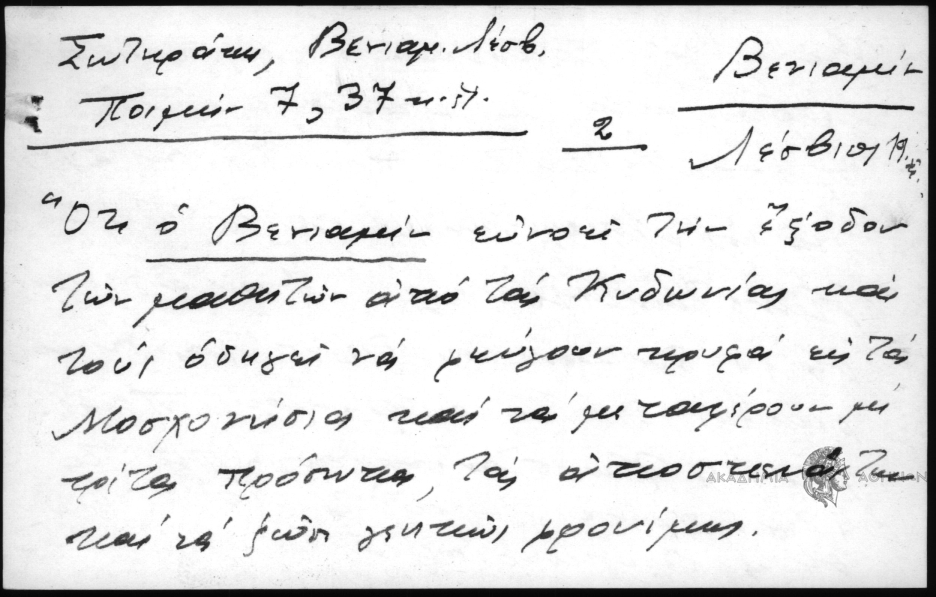 Σωτηράκη, Βενιαμ. Λέσβ.
Ποιμήν 7, 37 κ.ἑξ.
2
Βενιαμίν
Λέσβιος
"Ότι ὁ Βενιαμίν εὐνοεῖ τήν ἔξοδον
τῶν μαθητῶν ἀπό τάς Κυδωνίας καί
τούς ὁδηγεῖ νά φεύγουν κρυφά εἰς τά
Μοσχονήσια καί νά μεταφέρουν μέ
τρίτα πρόσωπα, τάς ἀποσκευάς των
καί νά ζῶσι γενικῶς φρονίμως.
ΑΚΑΔΗΜΙΑ ΑΘΗΝΩΝ